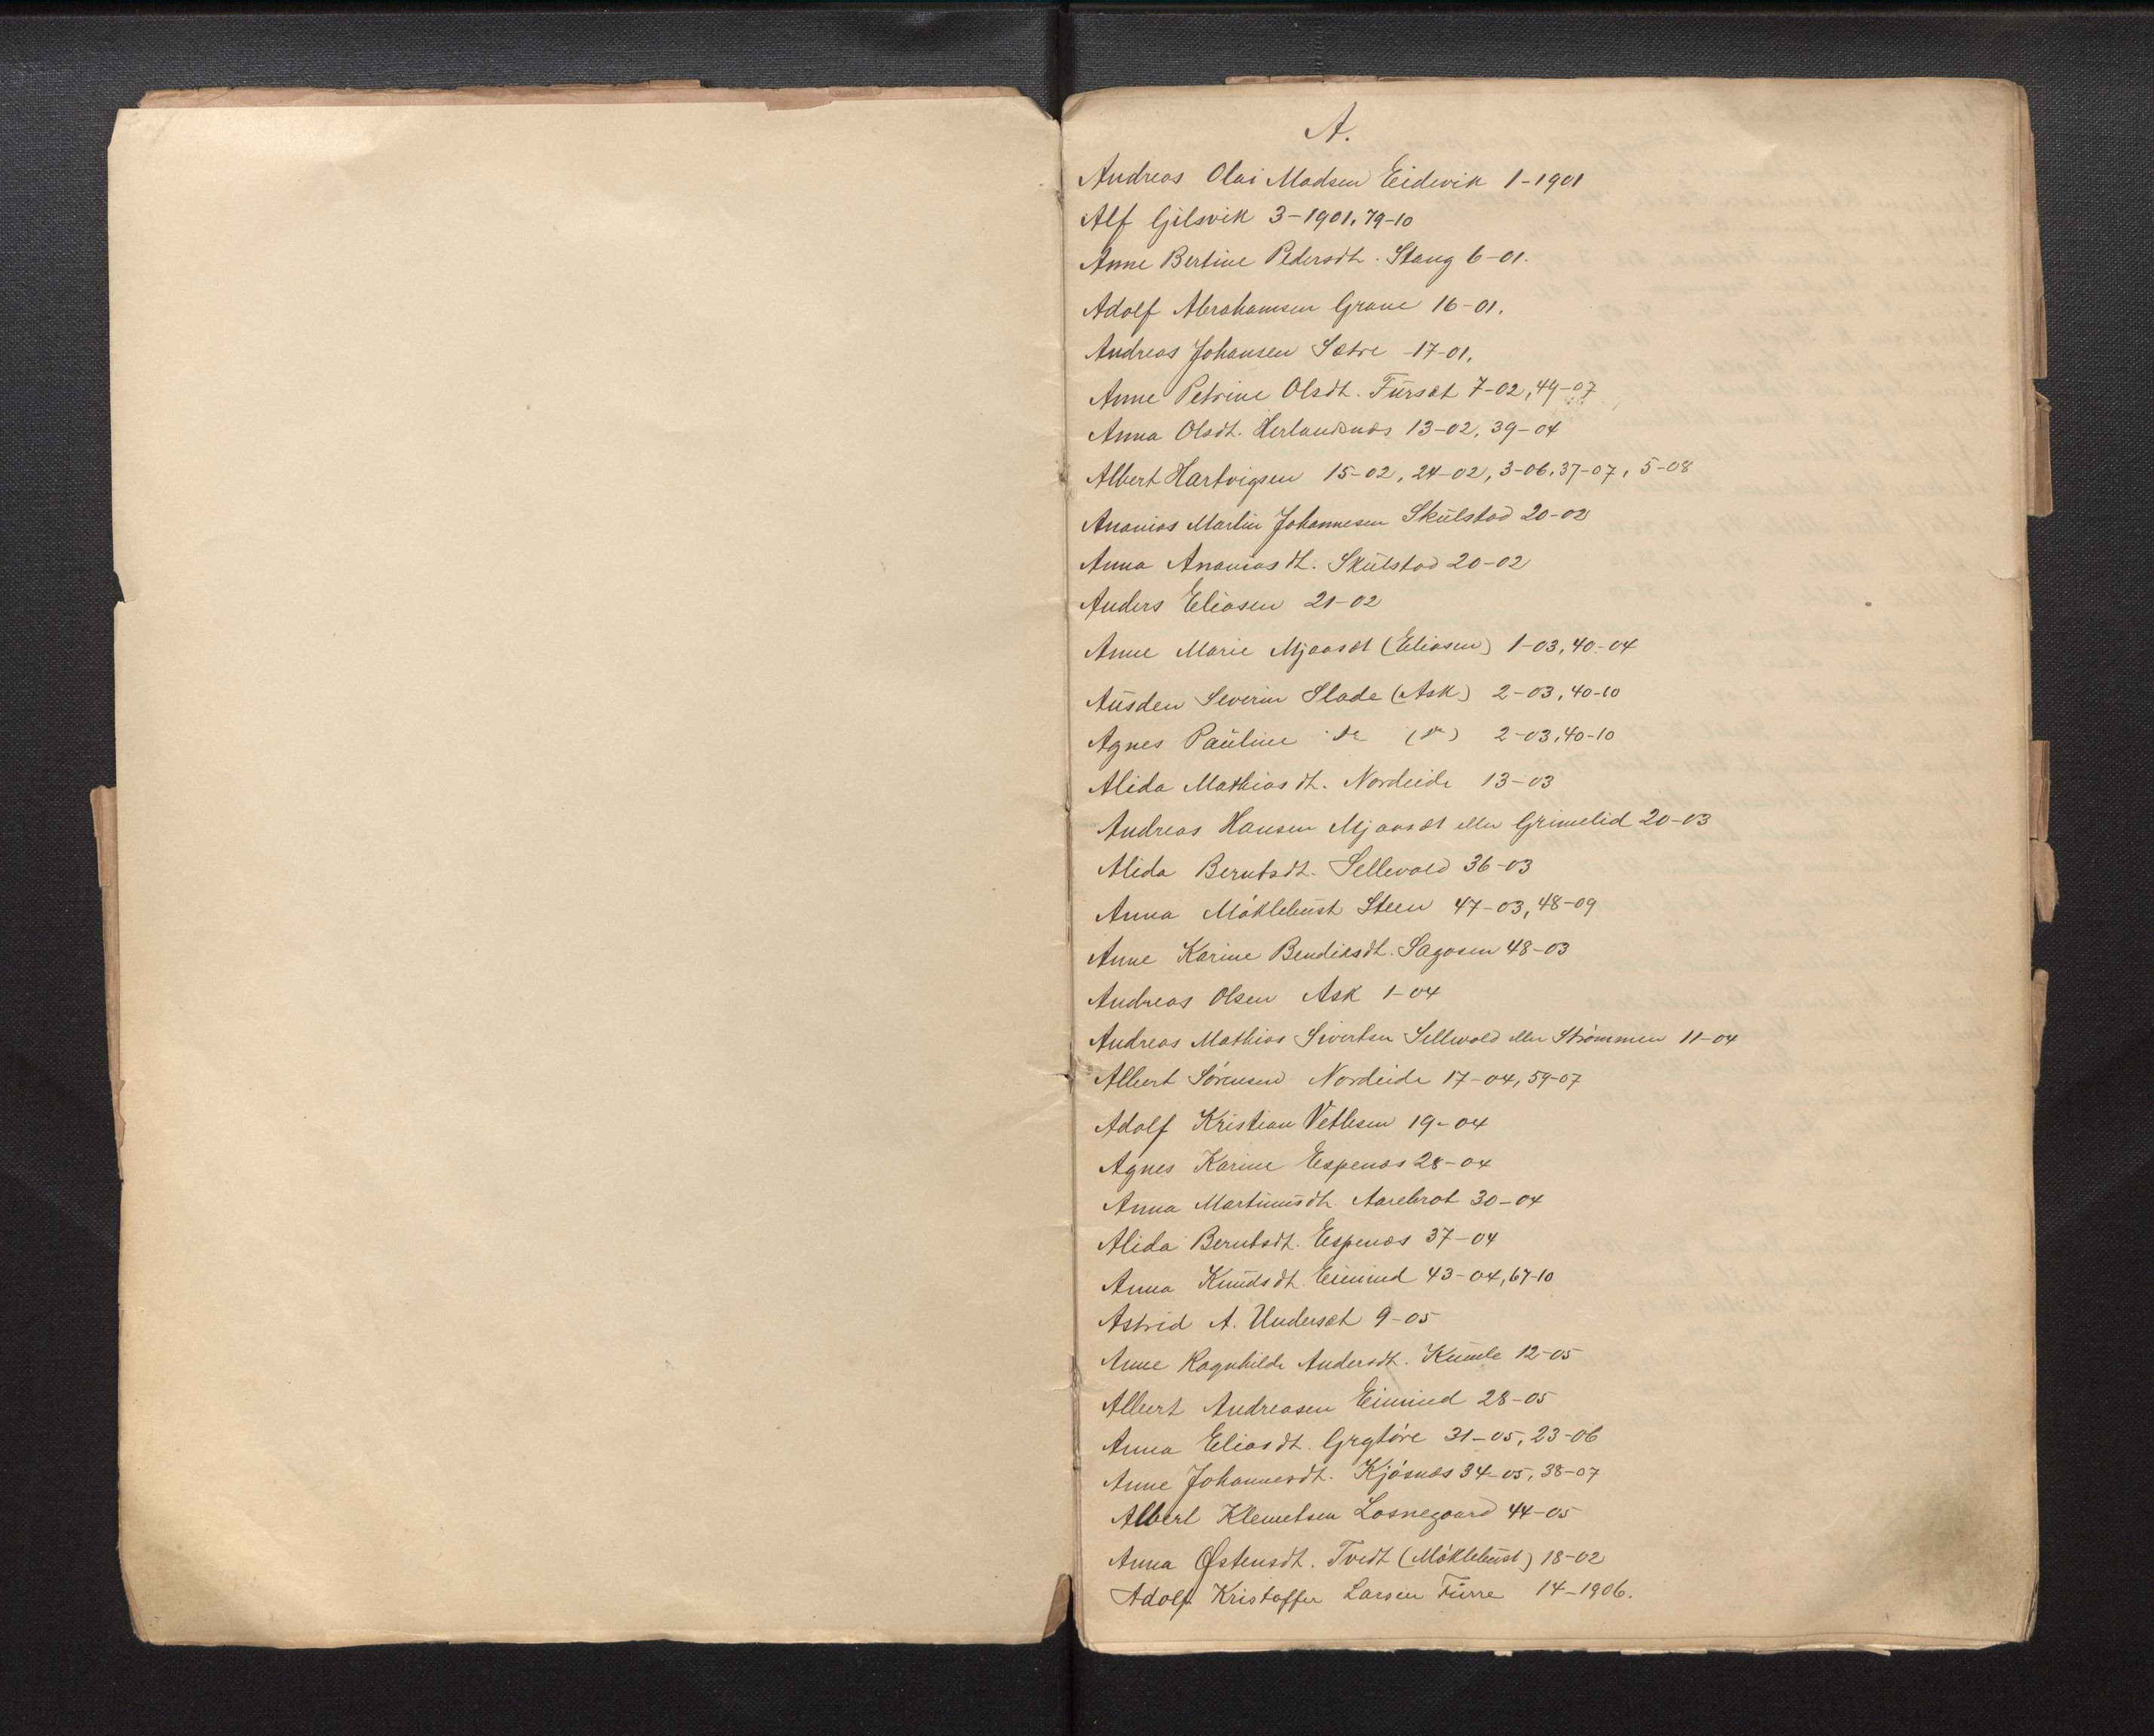 A.
Andreas Olai Madsen Eidevik 1-1901
Alf Gilsvik 3-1901, 79-10
Anne Bertine Pedersdt. Stang 6-01.
Adolf Abrahamsen Grane 16-01.
Andreas Johansen Sætre 17-01.
Anne Petrine Olsdt. Fürsæt 7-02, 49-07
Anna Olsdt. Herlandsnæs 13-02, 39-04
Albert Hartvigsen 15-02, 24-02, 3-06, 37-07, 5-08
Ananias Martin Johannesen Skülstad 20-02
Anna Ananiasdt. Skülstad 20-02
Anders Eliasen 21-02
Anne Marie Mjaasæt (Eliasen) 1-03, 40-04
Aüsden Severin Slade (Ask) 2-03, 40-10
Agnes Paüline do (do) 2-03, 40-10
Alida Mathiasdt. Nordeide 13-03
Andreas Hansen Mjaasæt eller Grimelid 20-03
Alida Berntsdt. Sellevold 36-03
Anna Möklebüst Steen 47-03, 48-09
Anne Karine Bendiksdt. Sagosen 48-03
Andreas Olsen Ask 1-04
Andreas Mathias Sivertsen Sellevold eller Strömmen 11-04
Albert Sörensen Nordeide 17-04, 59-07
Adolf Kristian Vetlesen 19-04
Agnes Karine Espenæs 28-04
Anna Martinüsdt. Aarebrot 30-04
Alida Berntsdt. Espenæs 37-04
Anna Knüdsdt. Eimind 43-04, 67-10
Astrid A. Undersæt 9-05
Anne Ragnhilde Andersdt. Kümle 12-05
Albert Andreasen Eimind 28-05
Anna Eliasdt. Grytöre 31-05, 23-06
Anne Johannesdt. Kjösnæs 34-05, 38-07
Albert Klemetsen Losnegaard 44-05
Anna Østensdt. Tvedt (Möklebüst) 18-02
Adolf Kristoffer Larsen Fürre 14-1906.